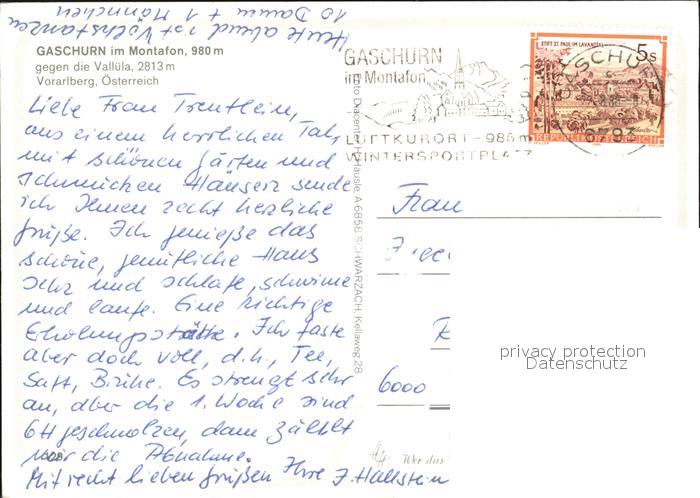 Heute abend ist Volkstanzen
10 Damen + 1 Männchen
GASCHURN im Montafon, 980 m
gegen die Vallüla, 2813 m
Vorarlberg, Österreich
Liebe Frau Trentlein,
aus einem herrlichen Tal,
mit schönen Gärten und
schmucken Häusern sende
ich Ihnen recht herzliche
Grüße. Ich genieße das
schöne, gemütliche Haus
sehr und schlafe, schwimme
und laufe. Eine richtige
Erholungsstätte. Ich faste
aber doch voll, d.h., Tee,
Saft, Brühe. Es strengt sehr
an, aber die 1. Woche sind
6 H geschmolzen, dann zählt
nur die Abnahme.
Mit recht lieben Grüßen Ihre J. Hallstein
Foto Diacenter H. Häusle, A 6858 SCHWARZACH, Kellaweg 28
GASCHURN
im Montafon
LUFTKURORT - 986 m
WINTERSPORTPLATZ
STIFT ST. PAUL IM LAVANTTAL
5s
REPUBLIK ÖSTERREICH
GASCHURN
6793
Frau
6000
Wer das
privacy protection
Datenschutz